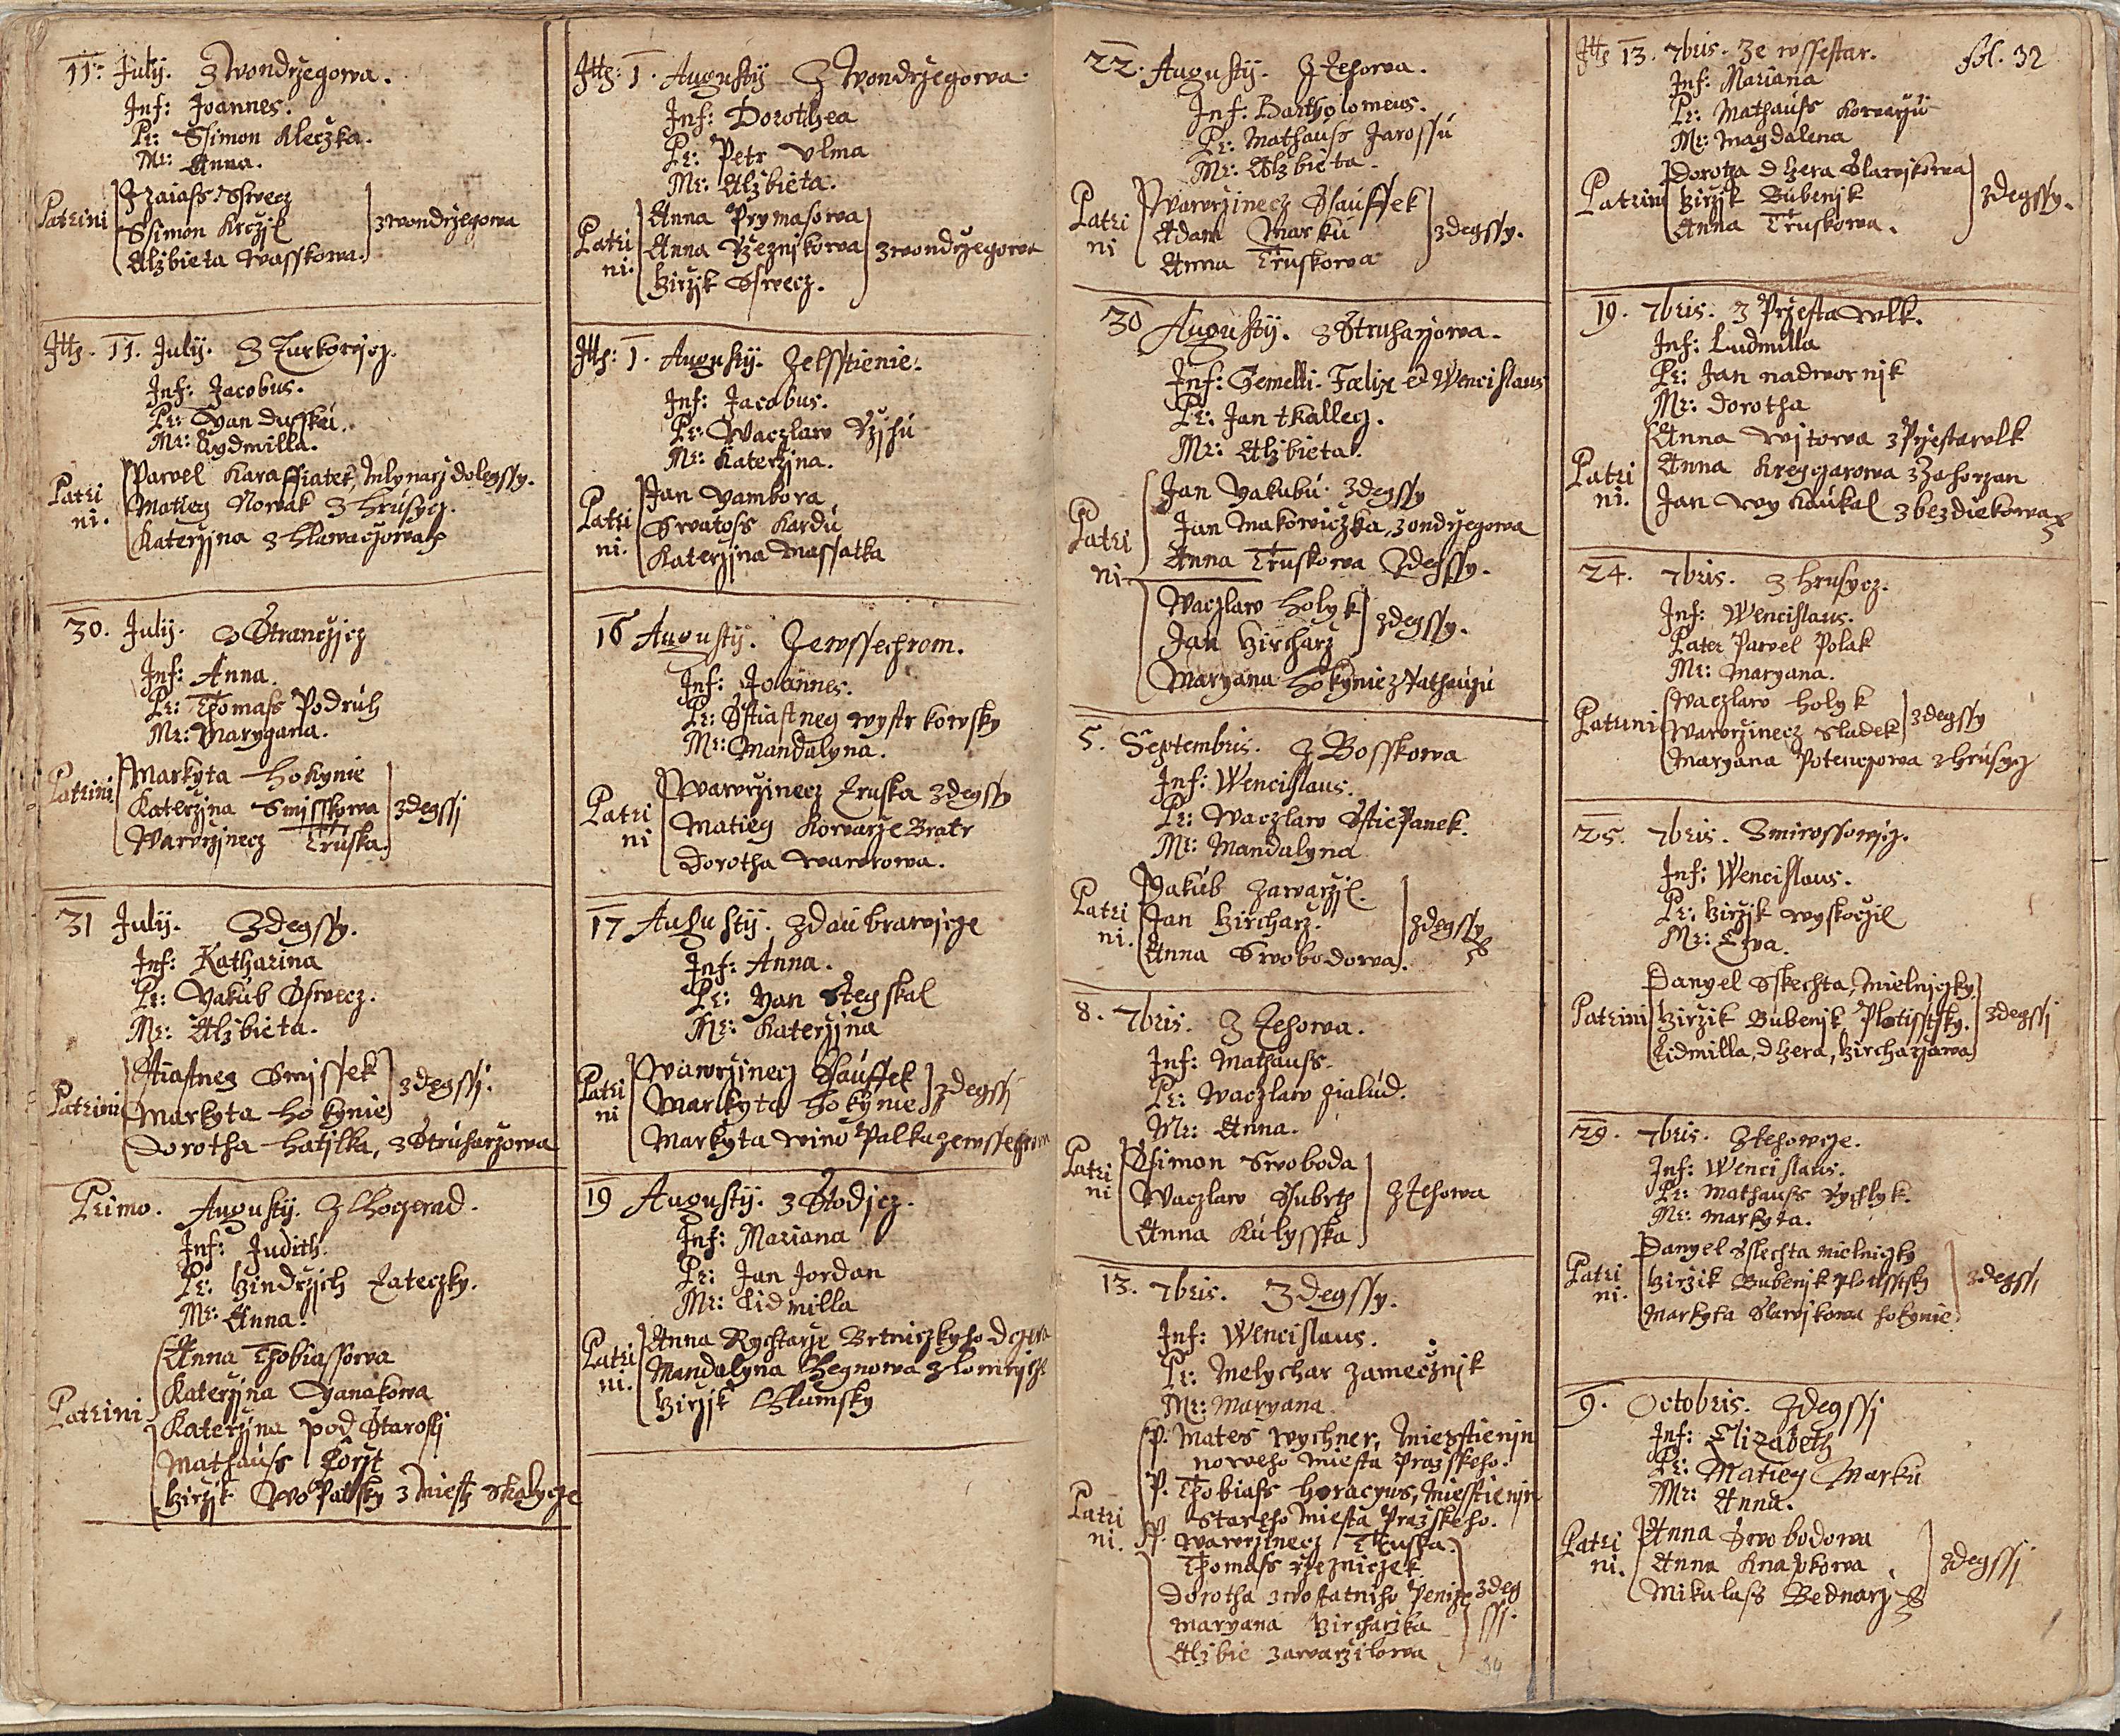 11. July. Z Wondrzegowa.
Inf: Joannes.
Pr: Ssimon Kleczka.
Mr: Anna.
Patrini
Izaiass Sswecz
Ssimon Krczjl
Alzbieta Wasskowa.
z wondrzegowa
Itt. 11. July. Z Turkowicz.
Inf: Jacobus.
Pr: Yan Dusskú.
Mr: Lydmilla.
Patri
ni.
Pawel Karaffiatek, Mlynarz dolegssy.
Matieg Nowak z hrúsycz.
Katerzina z Hlawaczowa
30. July. Z Stranczicz
Inf: Anna.
Pr: Thomass Podrúh
Mr: Marygana.
Patrini
Markyta Hokynie
Katerzina Smisskowa
Wawrzinecz Truska.
zdegssi
31 July. Zdegssy.
Inf: Katharina
Pr: Yakúb Sswecz.
Mr: Alzbieta.
Patrini
Stiastneg Smissek
Markyta Hokynie
zdegssj.
Dorotha Hatjlka, z Strúharzowa
Primo. Augusty. Z Choczerad.
Inf: Judith.
Pr: Hindrzich Zateczky.
Mr: Anna.
Patrini
Anna Thobiassowa
Katerzina Yanakowa
Katerzina pod Starostj
Mathauss Corjt
Hirzik Wopalsky z Miest Skalycze
Itt: 1. Augusty Z Wondrzegowa.
Inf: Dorothea
Pr: Petr Vlma
Mr: Alzbieta.
Patri
ni.
Anna Prymasowa
Anna Rzeznikowa
Hirzik Sswecz.
z wondrzegowa
Itt: 1. Augusty. Zelsstienie.
Inf: Jacobus.
Pr: Waczlaw Rzihú
Mr: Katerzina.
Patri
ni.
Jan Yambora
Swatoss Kardú
Katerzina Massatka
16 Augusty. Zewssechrom.
Inf: Joannes.
Pr: Stiastneg wystrkowsky
Mr: Mandalyna.
Patri
ni
Wawrzinecz Truska zdegssy
Matieg Kowarze Bratr
Dorotha Wawrowa.
17 Augusty. Zdaubrawicze
Inf: Anna.
Pr: Yan Stegskal
Mr: Katerzina
Patri
ni
Wawrzinecz Slaúffek
Markyta Hokynie
zdegssj
Markyta Wino Palka zewssechrom
19 Augusty. z Stodicz.
Inf: Mariana
Pr: Jan Jordan
Mr: Lidmilla
Patri
ni.
Anna Rychtarze Brtniczkyho Dczera
Mandalyna Hegnowa z Lomnicze
Hirzik Chlumsky
22. Augusty. Z Tehowa.
Inf: Bartholomeus.
Pr: Mathauss Jarossú
Mr: Alzbieta.
Patri
ni
Wawrzinecz Slaúffek
Adam Markú
Anna Truskowa
zdegssy.
30 Augusty. z Struharzowa.
Inf: Gemelli. Fœlix et Wencislaus
Pr: Jan tkalleg.
Mr: Alzbieta.
Patri
ni
Jan Yakubú zdegssy
Jan Makowiczka, z ondrzegowa
Anna Truskowa Zdegssy.
Waczlaw Holyk
Jan Hircharz
zdegssy.
Maryana Hokynie z Rathauzú
5. Septembris. Z Bosskowa
Inf: Wencislaus.
Pr: Waczlaw Sstiepanek.
Mr: Mandalyna
Patri
ni.
Yakúb Zawarzjl.
Jan Hircharz.
Anna Swobodowa.
zdegssy
8. 7bris. Z Tehowa.
Inf: Mathauss.
Pr: Waczlaw Zialúd.
Mr: Anna.
Patri
ni
Ssimon Swoboda
Waczlaw Ssubrth
Anna Kúlysska
Z Tehowa
13. 7bris. Zdegssy.
Inf: Wencislaus.
Pr: Melychar Zamecznik
Mr: Maryana.
Patri
ni.
P. Mates Wychner, Miesstienjn
noweho Miesta Prazskeho.
P. Thobiass Horacyus, Miesstienjn
Stareho Miesta Prazskeho.
P. Wawrzinecz Truska.
Thomass rzezniczek
Dorotha z wostatniho Penize
Maryana Hircharzka
Alzbie Zawarzilowa
zdeg
ssj.
34
Itt 13. 7bris. Ze wssestar. fol. 32
Inf: Mariana
Pr: Mathauss Kowarzú
Mr: Magdalena
Patrini
Dorotha dczera Slawikowa
Hirzik Bubenik
Anna Truskowa.
zdegssy.
19. 7bris. z Przestawlk.
Inf: Ludmilla
Pr: Jan nadwornik
Mr: Dorotha
Patri
ni.
Anna Witowa z Przestawlk
Anna Kreyczarowa z Zahorzan
Jan Wy Kaukal z bezdiekowa
24. 7bris. z hrusycz.
Inf: Wencislaus.
Pater Pawel Polak
Mr: Maryana.
Patrini
Waczlaw Holyk
Wawrzinecz Sladek
zdegssy
Maryana Potenczowa z hrúsycz
25. 7bris. Smirossowicz.
Inf: Wencislaus.
Pr: Hirzik Wyskoczil
Mr: Ewa.
Patrini
Danyel Sslechta, Mielniczky.
Hirzik Bubenik Plotisstsky.
Lidmilla, dczera, Hircharzowa
zdegssj
29. 7bris. Z Tehowcze.
Inf: Wencislaus.
Pr: Mathauss Rychlyk.
Mr: Markyta.
Patri
ni.
Danyel Sslechta Mielniczky
Hirzik Bubenik Plotisstsky
Markyta Slawikowa Hokynie
zdegssj
9. Octobris. Zdegssj
Inf: Elizabeth
Pr: Matieg Markú
Mr: Anna.
Patri
ni.
Anna Swobodowa
Anna Knapkowa
Mikulass Bednarz
zdegssj